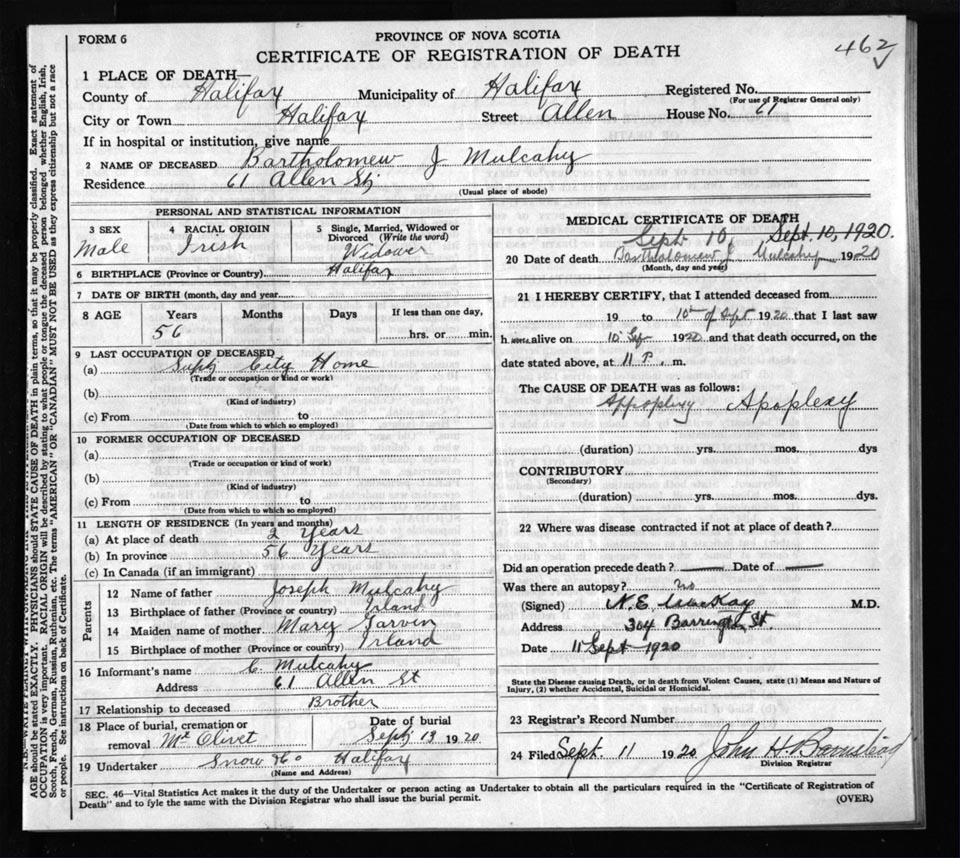 FORM 6
PROVINCE OF NOVA SCOTIA
CERTIFICATE OF REGISTRATION OF DEATH
462
1 PLACE OF DEATH—
County of Halifax Municipality of Halifax Registered No.
(For use of Registrar General only)
City or Town Halifax Street Allen House No. 61
If in hospital or institution, give name
2 NAME OF DECEASED Bartholomew J Mulcahy
Residence 61 Allen St
(Usual place of abode)
PERSONAL AND STATISTICAL INFORMATION
3 SEX Male
4 RACIAL ORIGIN Irish
5 Single, Married, Widowed or Divorced (Write the word) Widower
6 BIRTHPLACE (Province or Country) Halifax
7 DATE OF BIRTH (month, day and year)
8 AGE Years Months Days If less than one day,
56 hrs. or min.
9 LAST OCCUPATION OF DECEASED
(a) Supt City Home
(Trade or occupation or kind or work)
(b)
(Kind of industry)
(c) From to
(Date from which to which so employed)
10 FORMER OCCUPATION OF DECEASED
(a)
(Trade or occupation or kind of work)
(b)
(Kind of industry)
(c) From to
(Date from which to which so employed)
11 LENGTH OF RESIDENCE (In years and months)
(a) At place of death 2 Years
(b) In province 56 Years
(c) In Canada (if an immigrant)
Parents
12 Name of father Joseph Mulcahy
13 Birthplace of father (Province or country) Irland
14 Maiden name of mother Mary Garvin
15 Birthplace of mother (Province or country) Irland
16 Informant's name C. Mulcahy
Address 61 Allen St
17 Relationship to deceased Brother
18 Place of burial, cremation or removal Mt Olivet
Date of burial Sept 13 1920
19 Undertaker Snow & Co Halifax
(Name and Address)
MEDICAL CERTIFICATE OF DEATH
Sept 10, Sept. 10, 1920.
20 Date of death Bartholomew J. Mulcahy 1920
(Month, day and year)
21 I HEREBY CERTIFY, that I attended deceased from
19 to 10th of Sept 1920 that I last saw
h alive on 10 Sep 1920 and that death occurred, on the
date stated above, at 11 P. m.
The CAUSE OF DEATH was as follows:
Appoplexy Apoplexy
(duration) yrs. mos. dys
CONTRIBUTORY
(Secondary)
(duration) yrs. mos. dys.
22 Where was disease contracted if not at place of death?
Did an operation precede death? — Date of —
Was there an autopsy? no
(Signed) N. E. MacKay M.D.
Address 304 Barrington St.
Date 11 Sept 1920
State the Disease causing Death, or in death from Violent Causes, state (1) Means and Nature of
Injury, (2) whether Accidental, Suicidal or Homicidal.
23 Registrar's Record Number
24 Filed Sept 11 1920 John H. Barnstead
Division Registrar
SEC. 46—Vital Statistics Act makes it the duty of the Undertaker or person acting as Undertaker to obtain all the particulars required in the "Certificate of Registration of
Death" and to fyle the same with the Division Registrar who shall issue the burial permit.
(OVER)
AGE should be stated EXACTLY. PHYSICIANS should STATE CAUSE OF DEATH in plain terms, so that it may be properly classified. Exact statement of
OCCUPATION is very important. RACIAL ORIGIN will be described by stating to what people or tongue the deceased person belonged whether English, Irish,
Scotch, French, German, Russian, Ruthenian, etc. The terms "AMERICAN" OR "CANADIAN" MUST NOT BE USED as they express citizenship but not a race
or people. See instructions on back of Certificate.